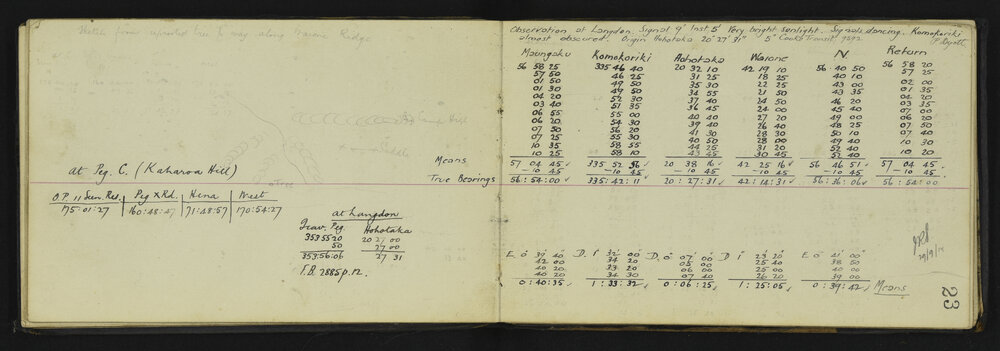 Sketch from reported tree to way along Waione Ridge
at Peg C. (Kaharoa Hill)
O.P. 11 Sun Res. Peg X Rd. Hena West
175-01-27 160:48:47 71:48:57 170:54:27
at Langdon
Trav. Peg Hohotaka
353 55 20 20 27 00
50 27 00
353:56:06 27 31
F.B. 2885 p. 12.
Observation at Langdon Signal 9" Inst 5' Very bright sunlight. Signals dancing. Komokoriki
almost obscured. Origin Hohotaka 20° 27' 31" 5" Cooks Transit 9292
Maungaku Komokoriki Hohotaka Waione N. Return
56 58 25 335 46 40 20 32 10 42 19 10 56 40 50 56 58 20
57 50 46 25 31 25 18 25 40 10 57 25
01 50 49 50 35 30 22 25 43 00 02 00
01 30 49 50 34 55 21 50 43 35 01 35
04 20 52 30 37 40 24 50 46 20 04 20
03 40 51 35 36 45 24 00 45 40 03 35
06 55 55 00 40 40 27 20 49 00 07 00
06 20 54 30 39 40 26 40 48 25 06 20
07 50 56 20 41 30 28 30 50 10 07 50
07 25 55 30 40 50 28 00 49 40 07 40
10 35 58 55 44 25 31 20 53 40 10 30
10 25 58 10 43 45 30 45 52 40 10 20
Means 57 04 45 335 52 56 20 38 16 42 25 16 56 46 51 57 04 45
-10 45 -10 45 -10 45 -10 45 -10 45 -10 45
True Bearings 56:54:00 335:42:11 20:27:31 42:14:31 56:36:06 56:54:00
E. 0° 39' 40" D. 1° 32' 00" D. 0° 07' 00" D 1° 23' 20" E 0° 41' 00"
42 00 34 20 05 00 25 40 38 50
40 20 33 20 06 00 25 00 40 00
40 20 34 30 07 40 26 20 39 00
0:40:35 1:33:32 0:06:25 1:25:05 0:39:42 Means
23